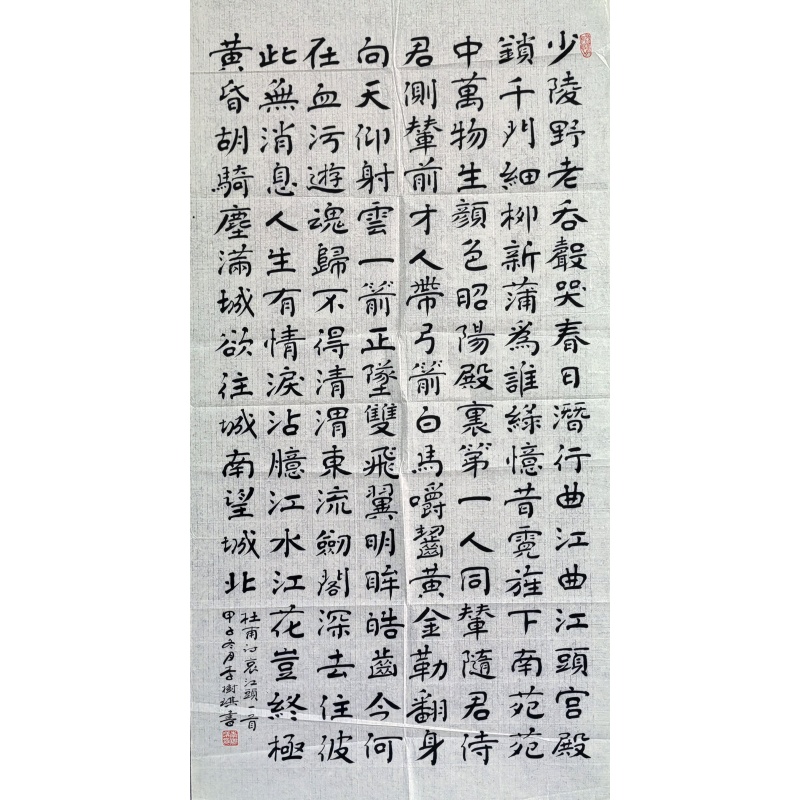 少陵野老吞聲哭春日潛行曲江曲江頭宮殿
鎖千門細柳新蒲爲誰綠憶昔霓旌下南苑苑
中萬物生顏色昭陽殿裏第一人同輦隨君侍
君側輦前才人帶弓箭白馬嚼齧黃金勒翻身
向天仰射雲一箭正墜雙飛翼明眸皓齒今何
在血污遊魂歸不得清渭東流劍閣深去住彼
此無消息人生有情淚沾臆江水江花豈終極
黃昏胡騎塵滿城欲往城南望城北
杜甫哀江頭一首
甲子冬月李樹琪書